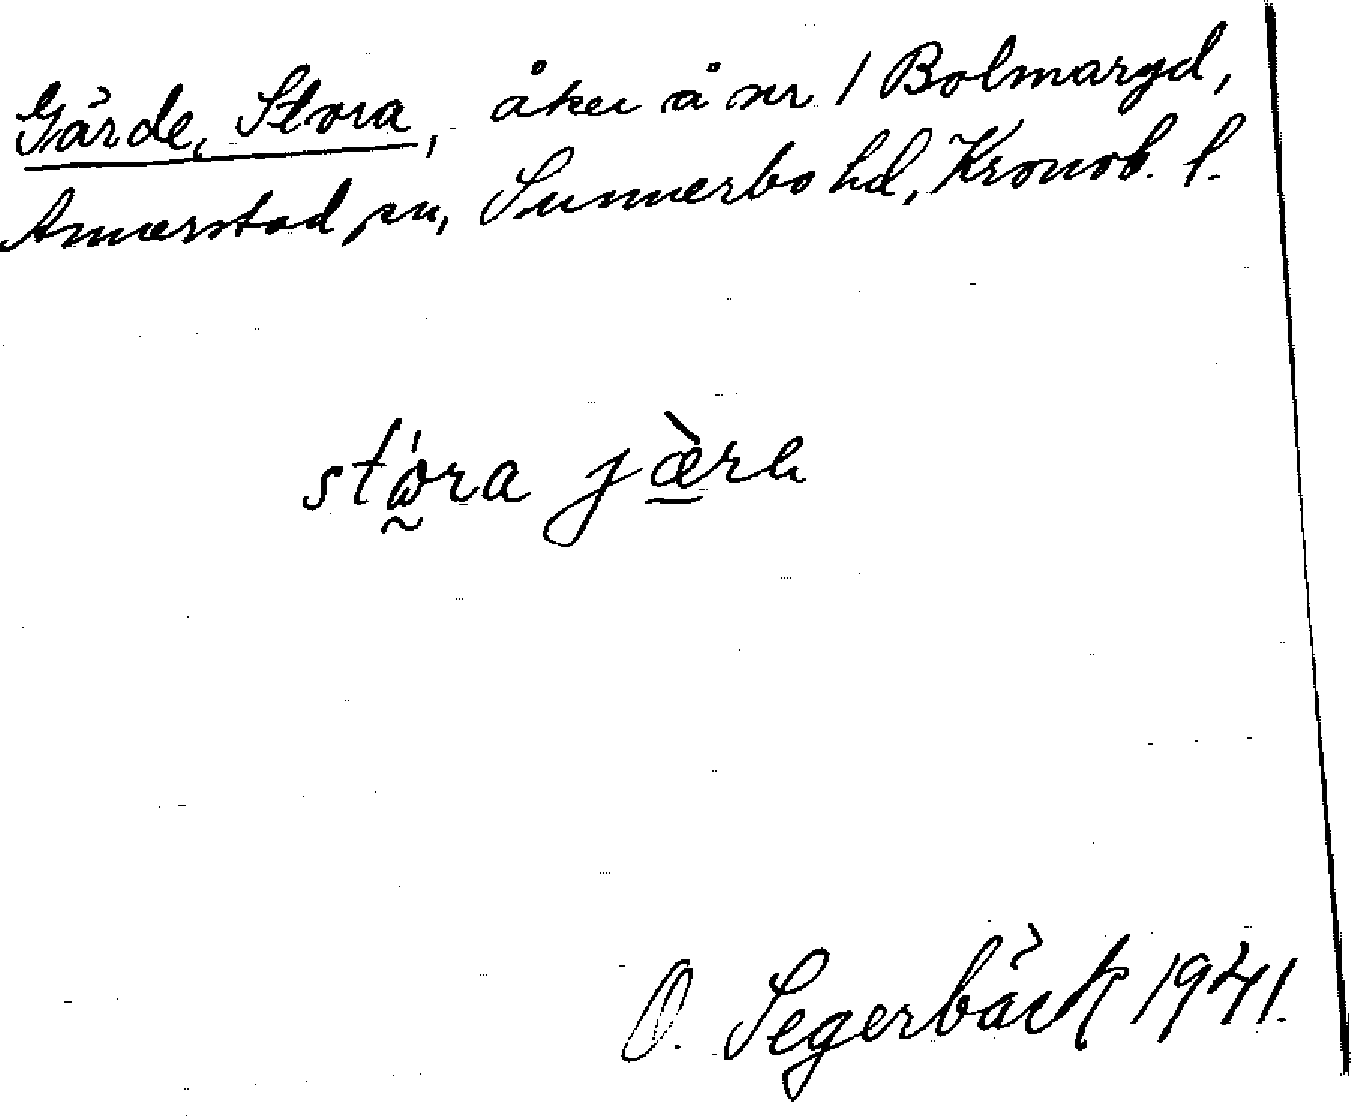 Gärde, Stora, åker å nr 1 Bolmaryd,
Annerstad sn, Sunnerbo hd, Kronob. l.
stora jærə
O. Segerbäck 1941.